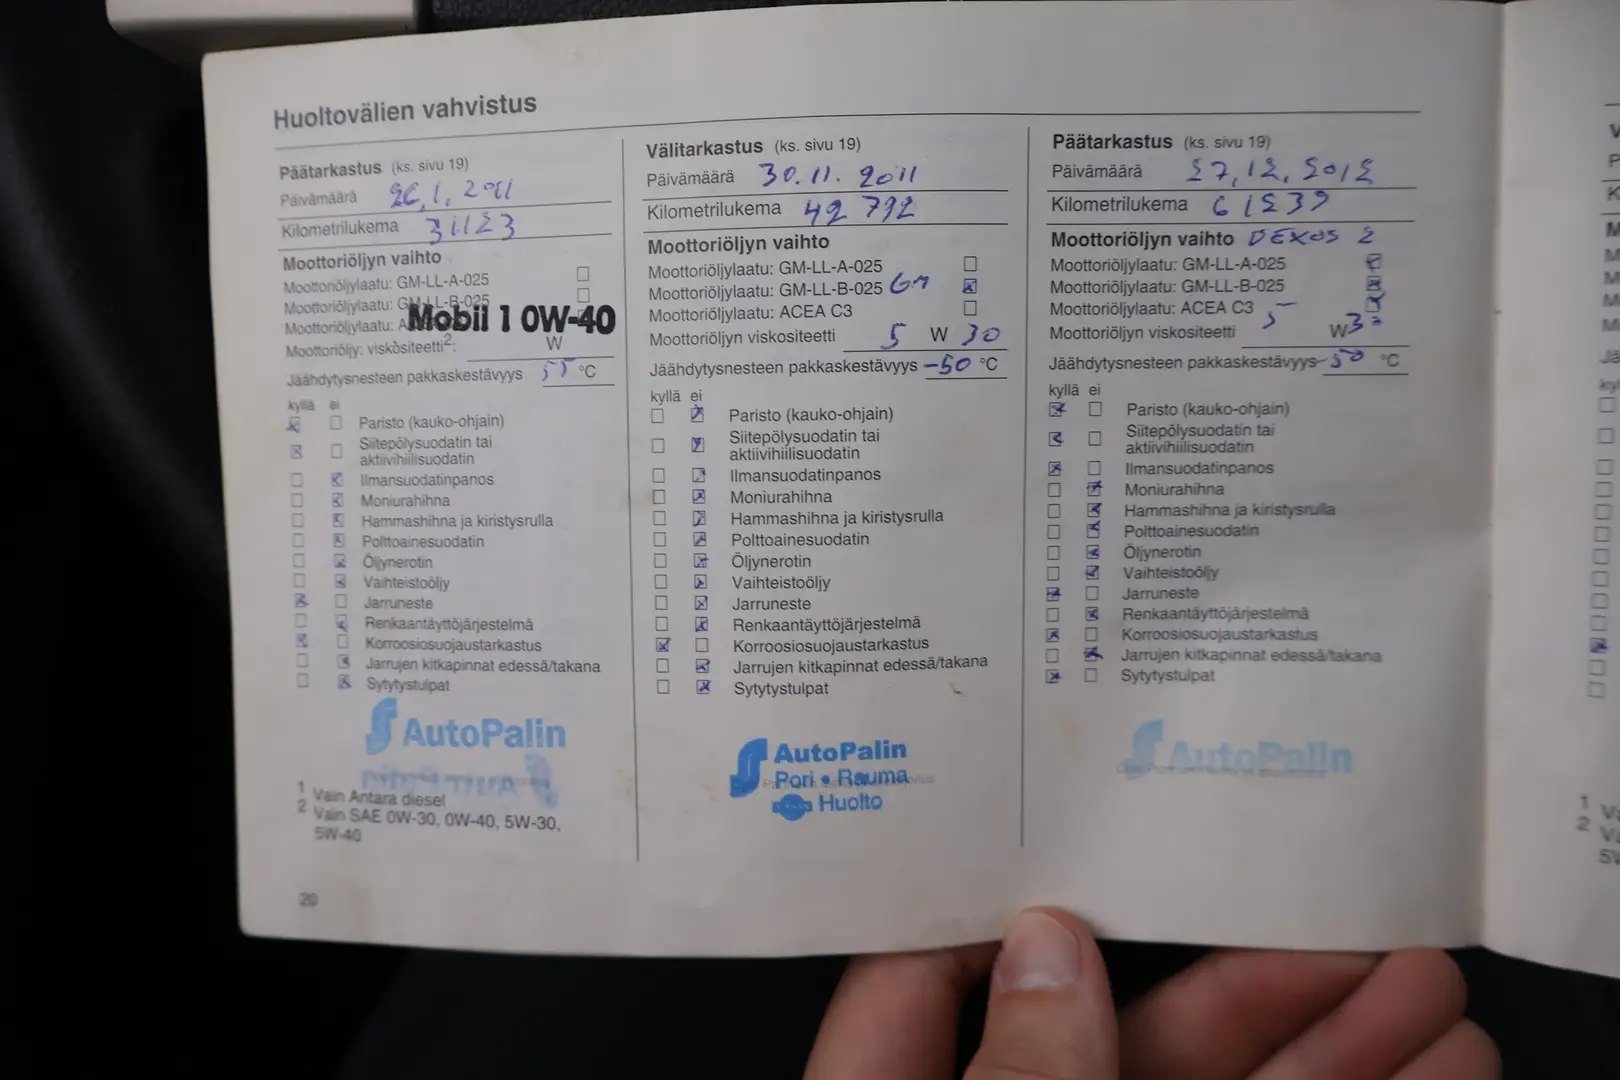 Huoltovälien vahvistus
Päätarkastus (ks. sivu 19)
Päivämäärä 26.1.2011
Kilometrilukema 31123
Moottoriöljyn vaihto
Moottoriöljylaatu: GM-LL-A-025
Moottoriöljylaatu: GM-LL-B-025
Moottoriöljylaatu: A
Mobil 1 0W-40
Moottoriöljy: viskositeetti2: W
Jäähdytysnesteen pakkaskestävyys °C
kyllä ei
Paristo (kauko-ohjain)
Siitepölysuodatin tai
aktiivihiilisuodatin
Ilmansuodatinpanos
Moniurahihna
Hammashihna ja kiristysrulla
Polttoainesuodatin
Öljynerotin
Vaihteistoöljy
Jarruneste
Renkaantäyttöjärjestelmä
Korroosiosuojaustarkastus
Jarrujen kitkapinnat edessä/takana
Sytytystulpat
AutoPalin
1 Vain Antara diesel
2 Vain SAE 0W-30, 0W-40, 5W-30,
5W-40
20
Välitarkastus (ks. sivu 19)
Päivämäärä 30.11.2011
Kilometrilukema 42 792
Moottoriöljyn vaihto
Moottoriöljylaatu: GM-LL-A-025
Moottoriöljylaatu: GM-LL-B-025 GM
Moottoriöljylaatu: ACEA C3
Moottoriöljyn viskositeetti 5 W 30
Jäähdytysnesteen pakkaskestävyys -50 °C
kyllä ei
Paristo (kauko-ohjain)
Siitepölysuodatin tai
aktiivihiilisuodatin
Ilmansuodatinpanos
Moniurahihna
Hammashihna ja kiristysrulla
Polttoainesuodatin
Öljynerotin
Vaihteistoöljy
Jarruneste
Renkaantäyttöjärjestelmä
Korroosiosuojaustarkastus
Jarrujen kitkapinnat edessä/takana
Sytytystulpat
AutoPalin
Pori • Rauma
Huolto
Päätarkastus (ks. sivu 19)
Päivämäärä 27.12.2012
Kilometrilukema 61239
Moottoriöljyn vaihto DEXOS 2
Moottoriöljylaatu: GM-LL-A-025
Moottoriöljylaatu: GM-LL-B-025
Moottoriöljylaatu: ACEA C3
Moottoriöljyn viskositeetti 5 W30
Jäähdytysnesteen pakkaskestävyys -50 °C
kyllä ei
Paristo (kauko-ohjain)
Siitepölysuodatin tai
aktiivihiilisuodatin
Ilmansuodatinpanos
Moniurahihna
Hammashihna ja kiristysrulla
Polttoainesuodatin
Öljynerotin
Vaihteistoöljy
Jarruneste
Renkaantäyttöjärjestelmä
Korroosiosuojaustarkastus
Jarrujen kitkapinnat edessä/takana
Sytytystulpat
AutoPalin